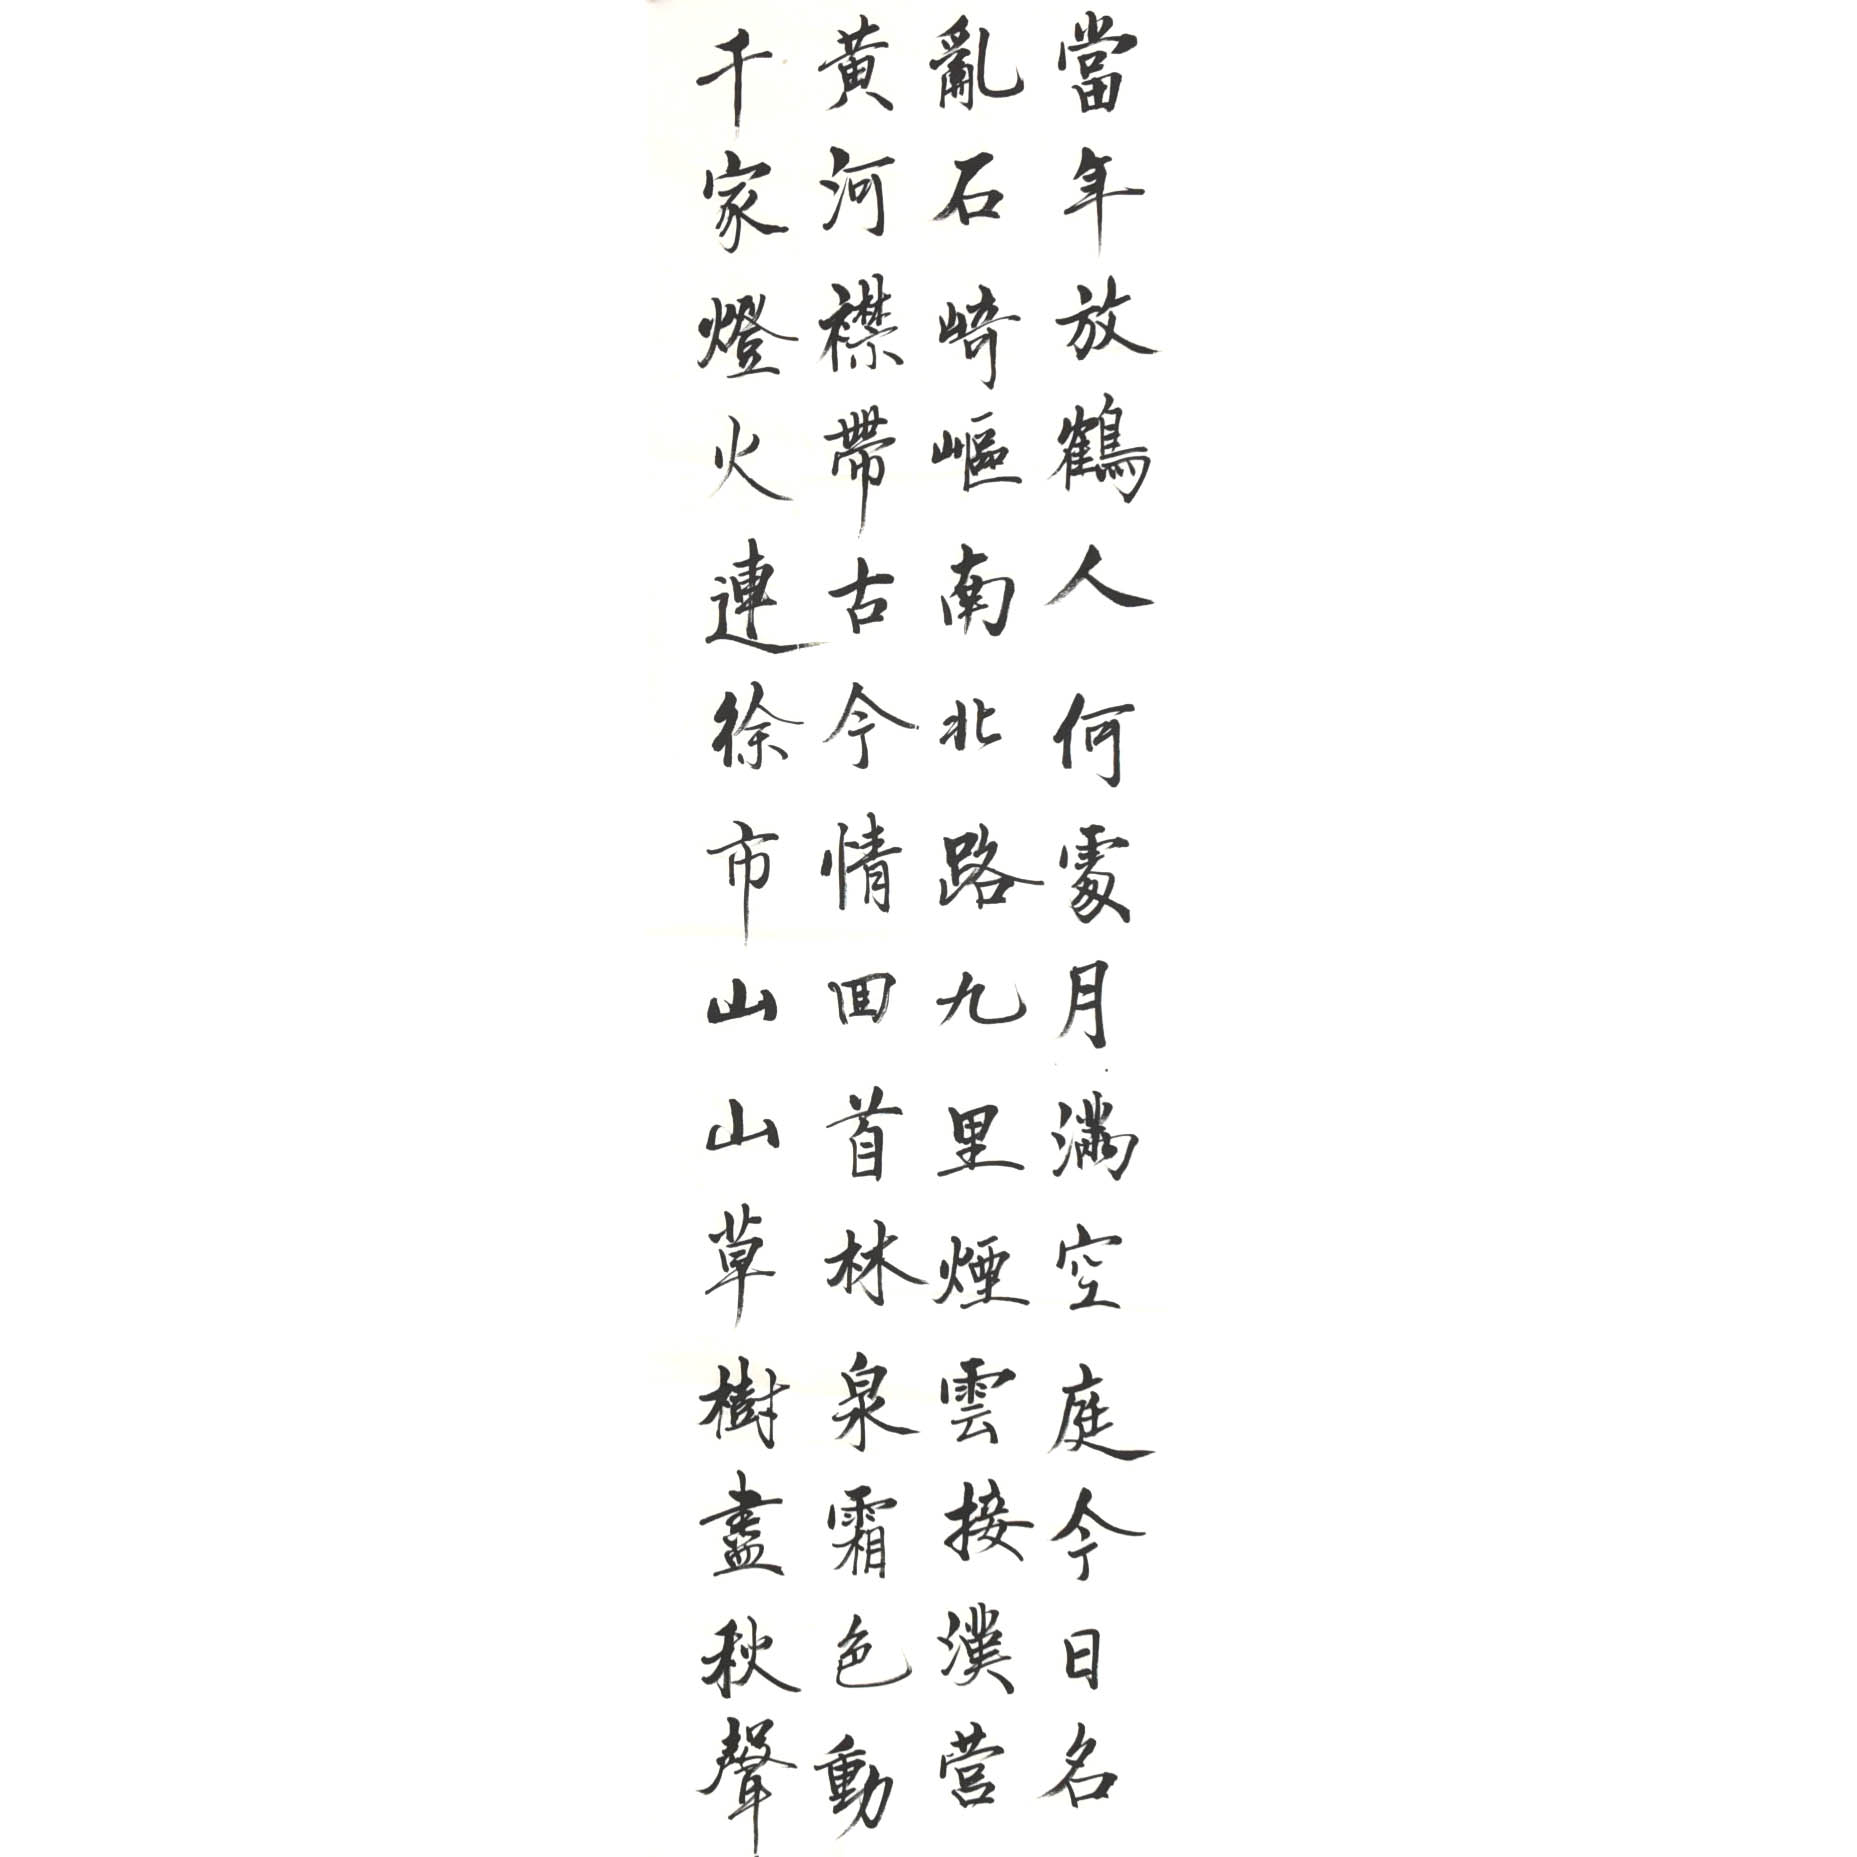 當年放鶴人何處月滿空庭今日名
亂石崎嶇南北路九里煙雲接漢营
黄河襟帶古今情回首林泉霜色動
千家燈火連徐市山山草樹盡秋聲